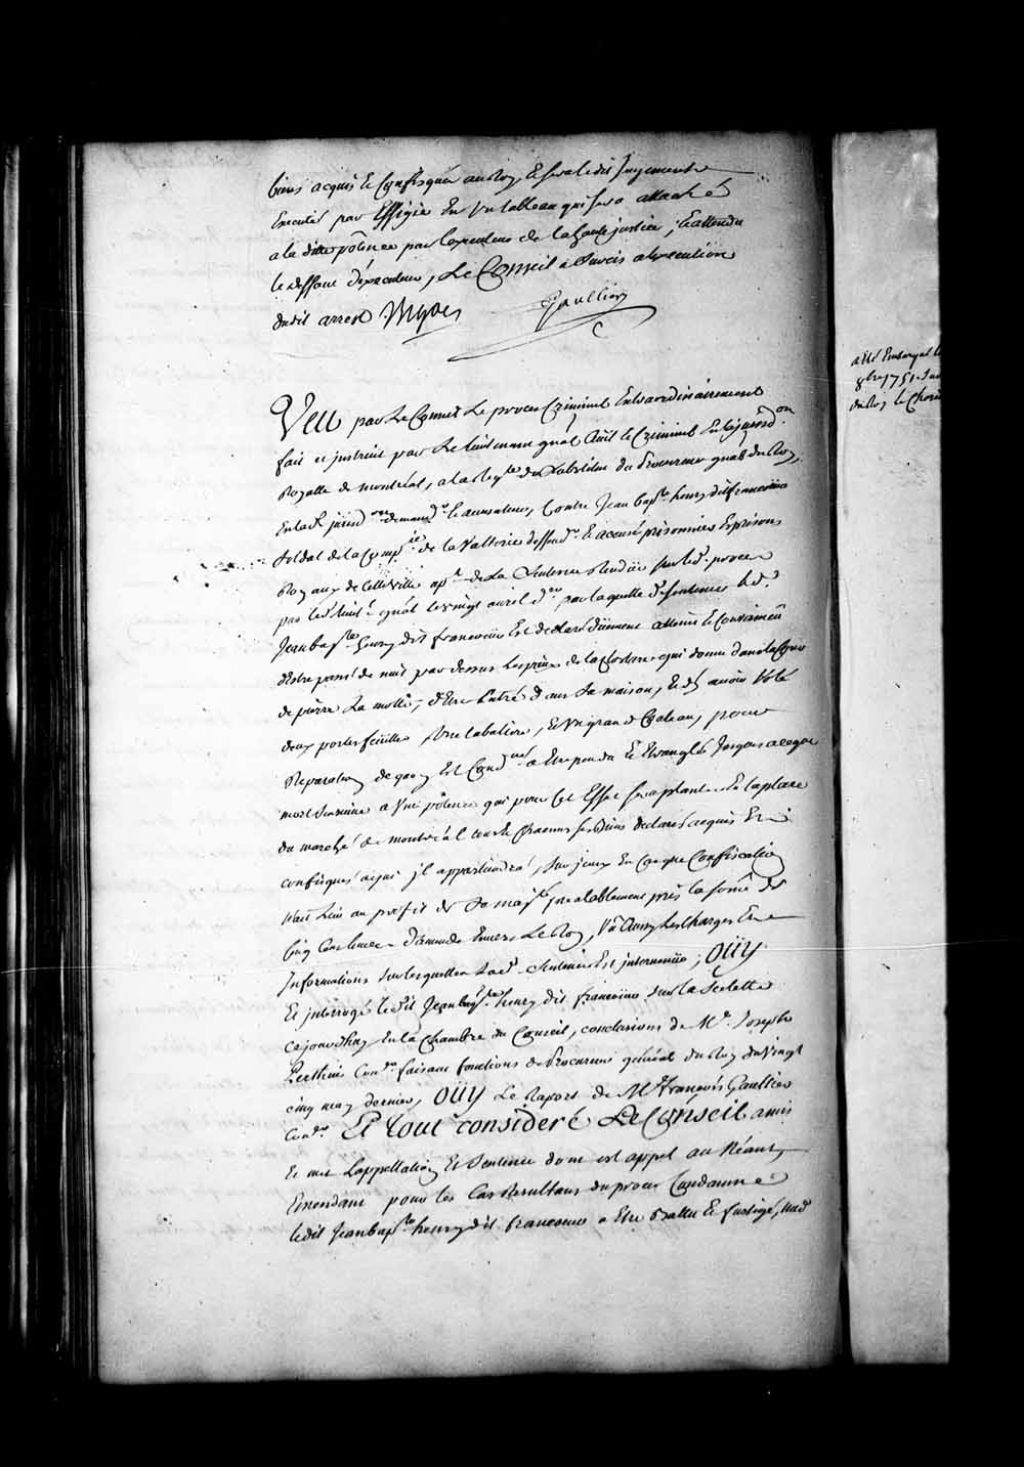 biens acquis et confisqués au Roy, et sera ledit jugement
Executé par Effigie En Un tableau qui sera attaché
a la ditte pôtence par l'executeur de la haute justice, et attendu
le deffaut d'executeur, Le Conseil a Surcis a l'execution
dudit arrest
Gaultier
Veu par Le Conseil Le procès Criminel Extraordinairement
fait et jnstruit par Le Lieutenant gñal Civil et Criminel En la jurisd.on
Royalle de montréal, a la Req.te du Substitut du Procureur gñal du Roy,
En lad. jurisd.on demand.r et accusateur, Contre Jean bap.te henry dit francoeur
Soldat de la Comp.ie de la Valterie deffend.r et accusé prisonnier Es prisons
Royaux de cette Ville ap.t de La Sentence Rendüe sur led. procès
par led. Lieut.t gñal le vingt avril d.er par laquelle d. sentence led.
Jean bap.te henry dit francoeur Est declaré düement atteint et Convaincu
d'estre passé de nuit par dessus les pieux de la closture qui donne dans la Cour
de pierre La mothe, d'Etre Entré dans Sa maison, et d'y avoir Volé
deux portefeüilles, Une tabatiere, et Un grand Couteau, pour
Reparation de quoy Est Cond.né a Etre pendu et Etranglé jusques a ce que
mort s'ensuive a Une pôtence qui pour cet Effet sera plantée En la place
du marché de montréal tous et Chacuns ses Biens declarés acquis Et
confisqués a qui jl appartiendra, Sur jceux En cas que Confiscation
n'ait Lieu au profit de Sa maj.té prealablement pris la somme de
Cinq Cens livres d'amende Envers Le Roy, Vû Aussy Les Charges Et
Informations Sur lesquelles lad. Sentence Est jntervenüe; OUY
Et jnterrogé ledit Jean bap.te henry dit francoeur Sur la Sellette
cejourdhuy En la Chambre du Conseil, conclusions de M.e Joseph
Perthuis Con.er faisant fonctions de Procureur général du Roy du Vingt
cinq may dernier, OUY Le Raport de M.e François Gaultier
Con.er Et tout consideré Le Conseil a mis
Et met L'appellation Et Sentence dont est appel au Néant,
Emendant pour les Cas Resultans du procès Condamne
ledit Jean bap.te henry dit francoeur a Etre Battu et fustigé, nud
a Eté Embarqué le
8bre 1751
du Roy le